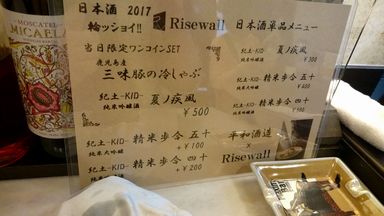 MOSCATEL
MICAELA
日本酒 2017
輪ッショイ!!
Risewall
日本酒単品メニュー
当日限定ワンコインSET
鹿児島産
三味豚の冷しゃぶ
紀土-KID- 夏ノ疾風
純米吟醸酒
¥500
紀土-KID- 精米歩合 五十
純米大吟醸
+¥100
紀土-KID- 精米歩合 四十
純米大吟醸
+¥200
紀土-KID- 夏ノ疾風
純米吟醸酒
¥300
紀土-KID- 精米歩合 五十
純米大吟醸
¥400
紀土-KID- 精米歩合 四十
純米大吟醸
平和酒造
×
Risewall